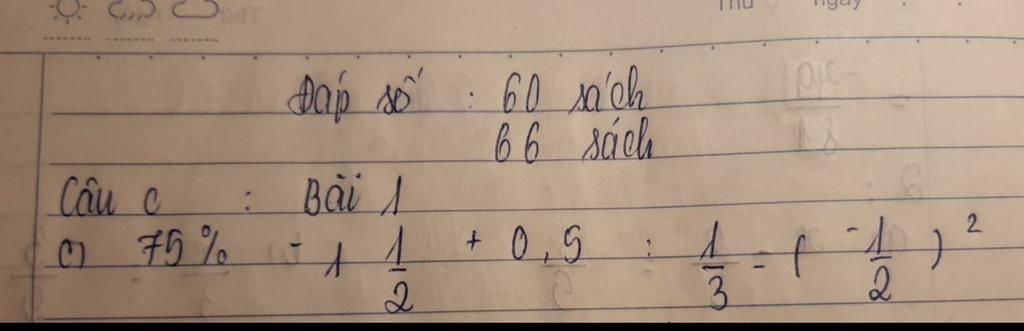 Thứ ngày
Đáp số : 60 sách
66 sách
Câu c : Bài 1
c) 75% - 1 1/2 + 0,5 : 1/3 - ( -1/2 )²